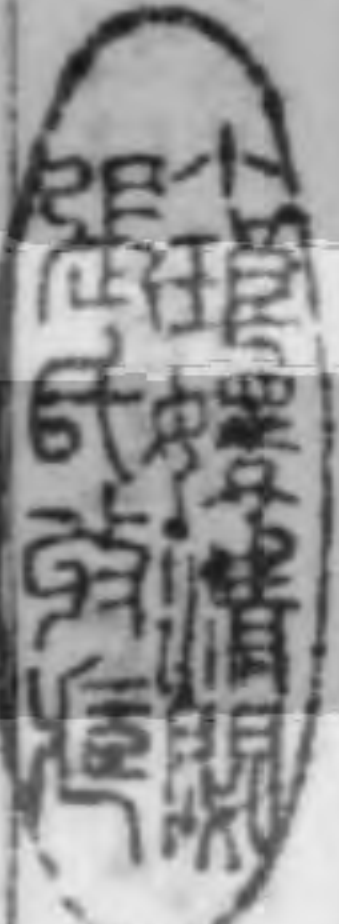 小琅嬛清閟
張氏收藏